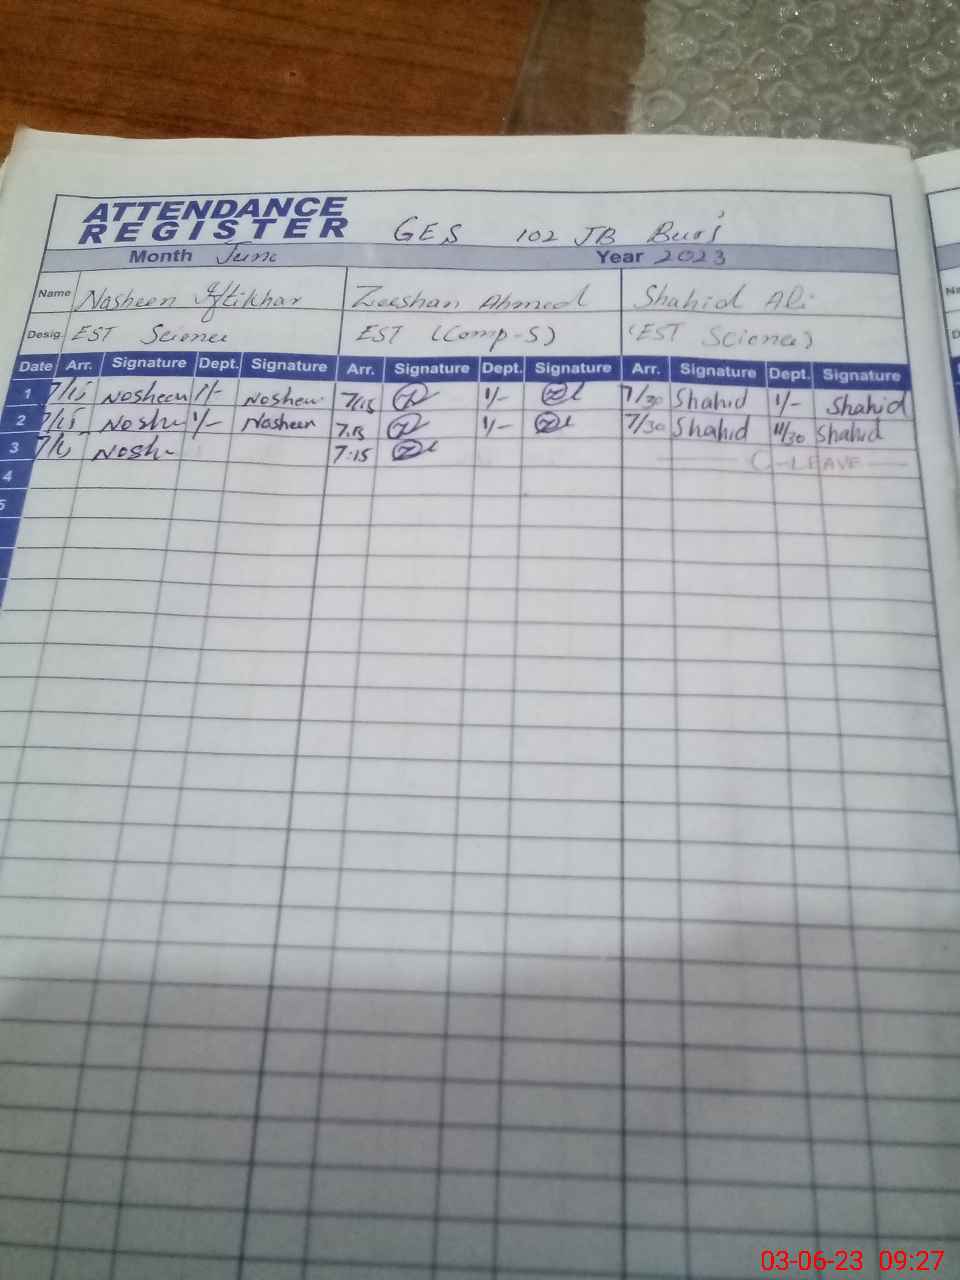 ATTENDANCE
REGISTER GES 102 JB Burj
Month June Year 2023
Name Nosheen Iftikhar Zeeshan Ahmed Shahid Ali
Desig. EST Science EST (Comp-S) (EST Science)
Date Arr. Signature Dept. Signature Arr. Signature Dept. Signature Arr. Signature Dept. Signature
1 7/15 Nosheen 1/- Nosheen 7/15 1/- 7/30 Shahid 1/- Shahid
2 7/15 Noshe 1/- Nosheen 7:15 1/- 7/30 Shahid 11/30 Shahid
3 Nosh 7:15 C-LEAVE
4
5
03-06-23 09:27